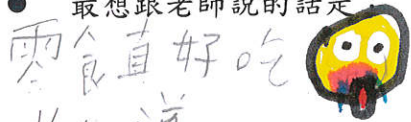 ● 最想跟老師說的話是
零食真好吃